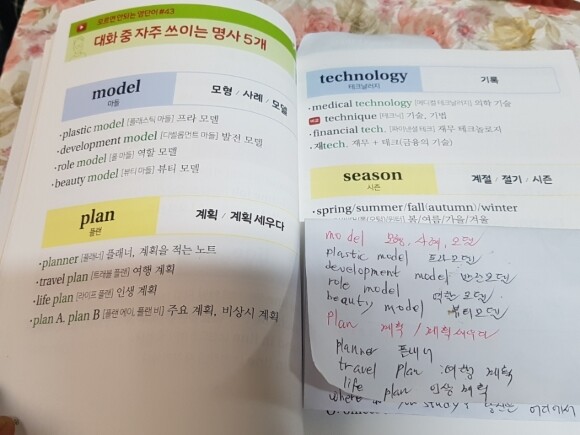 모르면 안되는 영단어 #43
대화 중 자주 쓰이는 명사 5개
model
마들
모형 / 사례 / 모델
·plastic model [플래스틱 마들] 프라 모델
·development model [디벨롭먼트 마들] 발전 모델
·role model [롤 마들] 역할 모델
·beauty model [뷰티 마들] 뷰티 모델
plan
플랜
계획 / 계획 세우다
·planner [플래너] 플래너, 계획을 적는 노트
·travel plan [트래블 플랜] 여행 계획
·life plan [라이프 플랜] 인생 계획
·plan A. plan B [플랜 에이, 플랜 비] 주요 계획, 비상시 계획
technology
테크널러지
기록
·medical technology [메디컬 테크널러지] 의학 기술
technique [테크닉] 기술, 기법
·financial tech. [파이낸셜 테크] 재무 테크놀로지
·재tech. 재무 + 테크(금융의 기술)
season
시즌
계절 / 절기 / 시즌
·spring/summer/fall(autumn)/winter
봄/여름/가을/겨울
model 모형, 사례, 모델
plastic model 프라모델
development model 발전모델
role model 역할모델
beauty model 뷰티모델
plan 계획 / 계획세우다
planner 플래너
travel plan 여행 계획
life plan 인생 계획
where study? 당신은 어디에서